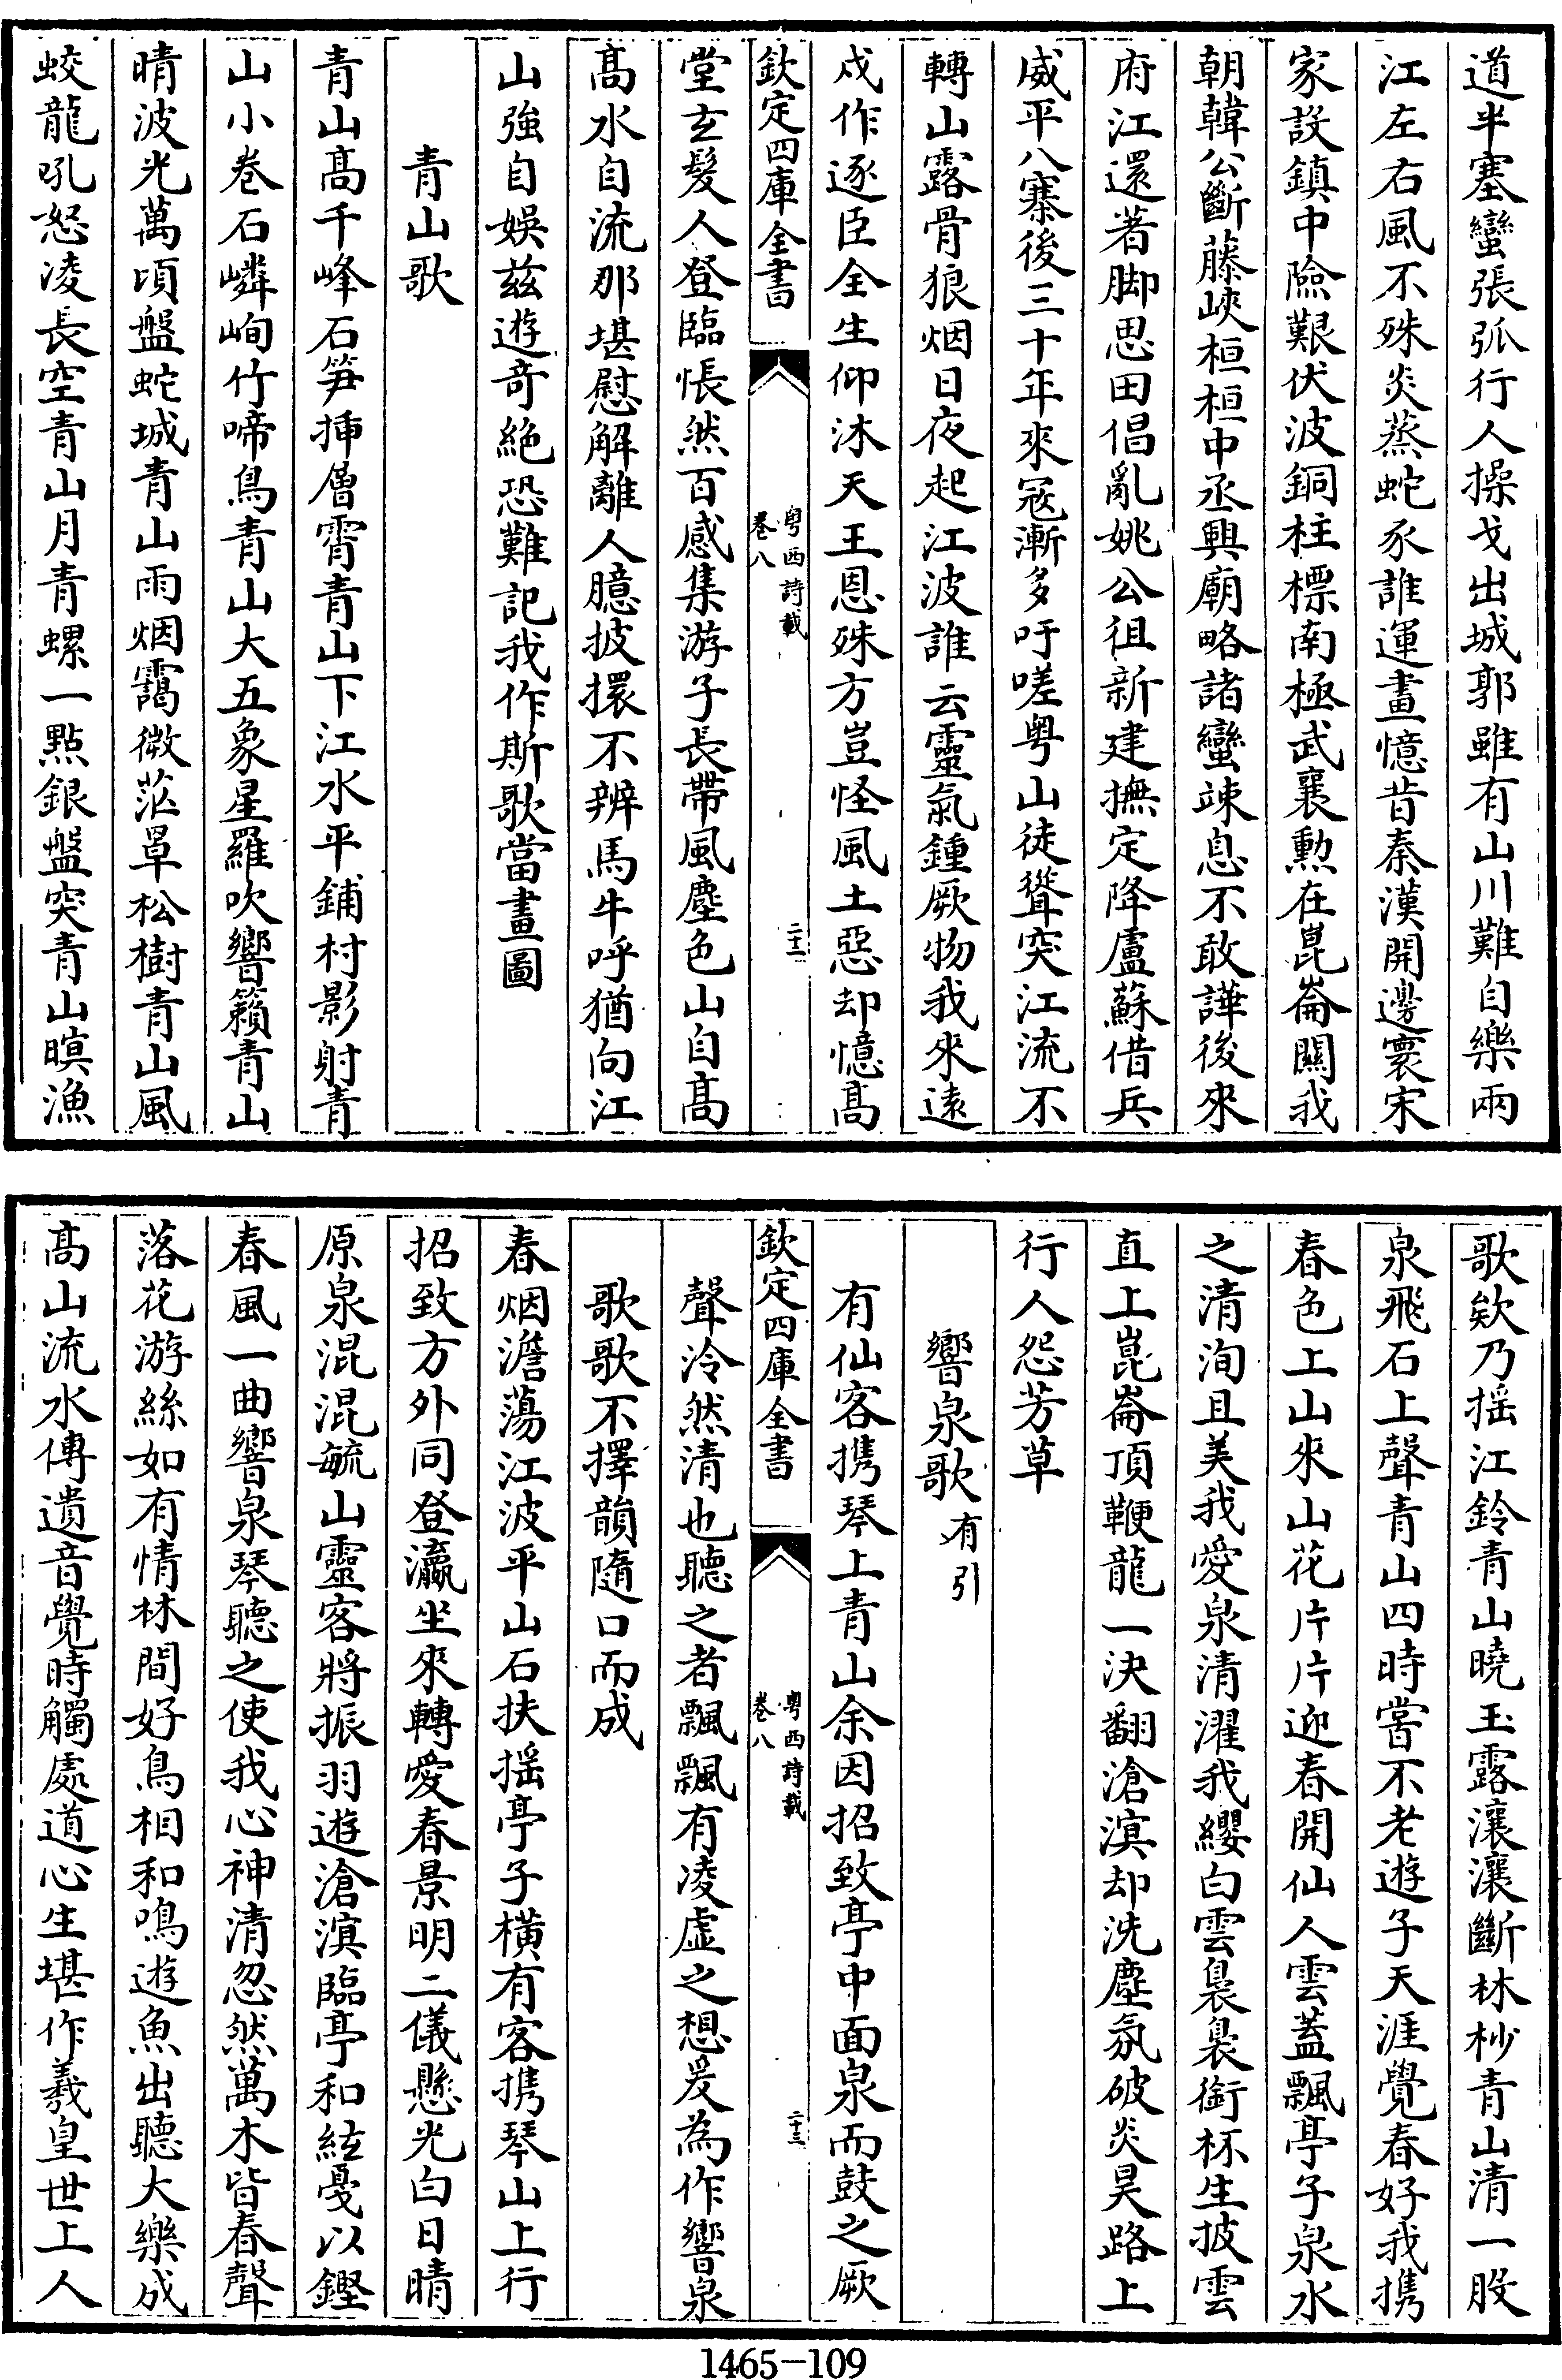 道半塞蠻張弧行人操戈出城郭雖有山川難自樂兩
江左右風不殊炎蒸蛇豕誰運畫憶昔秦漢開邊寰宋
家設鎮中險艱伏波銅柱標南極武襄勲在崑崙關我
朝韓公斷藤峽桓桓中丞興廟略諸蠻竦息不敢譁後來
府江還著脚思田倡亂姚公徂新建撫定降盧蘇借兵
威平八寨後三十年來冦漸多吁嗟粤山徒聳突江流不
轉山露骨狼烟日夜起江波誰云靈氣鍾厥物我來遠
戍作逐臣全生仰沐天王恩殊方豈怪風土惡却憶髙
欽定四庫全書
粤西詩載
卷八
二十二
堂玄髮人登臨悵然百感集游子長帶風塵色山自髙
髙水自流那堪慰解離人臆披擐不辨馬牛呼猶向江
山強自娛兹遊奇絶恐難記我作斯歌當畫圖
青山歌
青山髙千峰石笋揷層霄青山下江水平鋪村影射青
山小巻石嶙峋竹啼鳥青山大五象星羅吹響籟青山
晴波光萬頃盤蛇城青山雨烟靄微茫草松樹青山風
蛟龍吼怒凌長空青山月青螺一點銀盤突青山暝漁
歌欸乃揺江鈴青山曉玉露瀼瀼斷林杪青山清一股
泉飛石上聲青山四時嘗不老遊子天涯覺春好我携
春色上山來山花片片迎春開仙人雲蓋飄亭子泉水
之清洵且美我愛泉清濯我纓白雲裊裊銜杯生披雲
直上崑崙頂鞭龍一决翻滄溟却洗塵氛破炎昊路上
行人怨芳草
響泉歌有引
有仙客携琴上青山余因招致亭中面泉而鼓之厥
欽定四庫全書
粤西詩載
卷八
二十三
聲泠然清也聽之者飄飄有凌虚之想爰為作響泉
歌歌不擇韻隨口而成
春烟澹蕩江波平山石扶揺亭子橫有客携琴山上行
招致方外同登瀛坐來轉愛春景明二儀懸光白日晴
原泉混混毓山靈客將振羽遊滄溟臨亭和絃戞以鏗
春風一曲響泉琴聽之使我心神清忽然萬木皆春聲
落花游絲如有情林間好鳥相和鳴遊魚出聽大樂成
髙山流水傳遺音覺時觸處道心生堪作羲皇世上人
1465-109